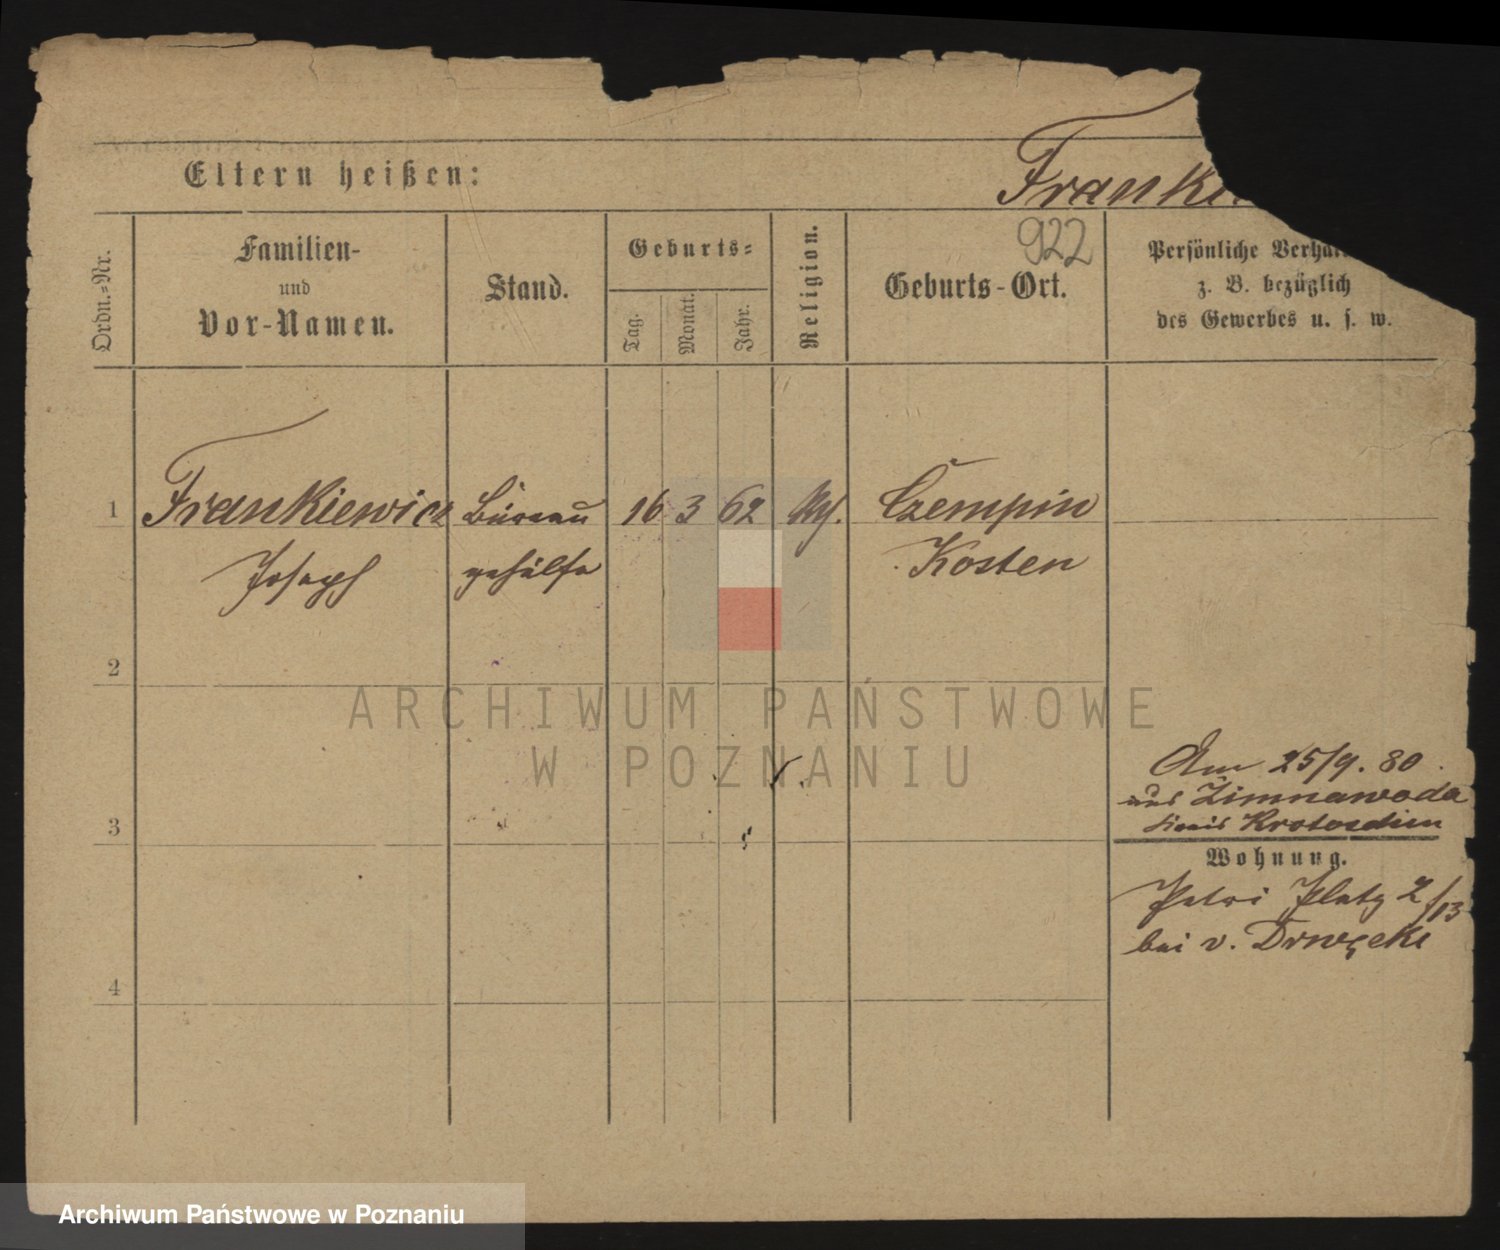 Eltern heißen:
Frankie
922
Ordn.-Nr.
Familien-
und
Vor-Namen.
Stand.
Geburts-
Tag.
Monat.
Jahr.
Religion.
Geburts-Ort.
Persönliche Verhä
z. B. bezüglich
des Gewerbes u. s. w.
1 Frankiewicz Büreau 16 3 62 Czempin
Joseph gehülfe Kosten
2
ARCHIWUM PAŃSTWOWE
W POZNANIU
Am 25/9. 80
aus Zimnawoda
Kreis Krotoschin
3
Wohnung.
Petri Platz 2/13
bei v. Drwęcki
4
Archiwum Państwowe w Poznaniu